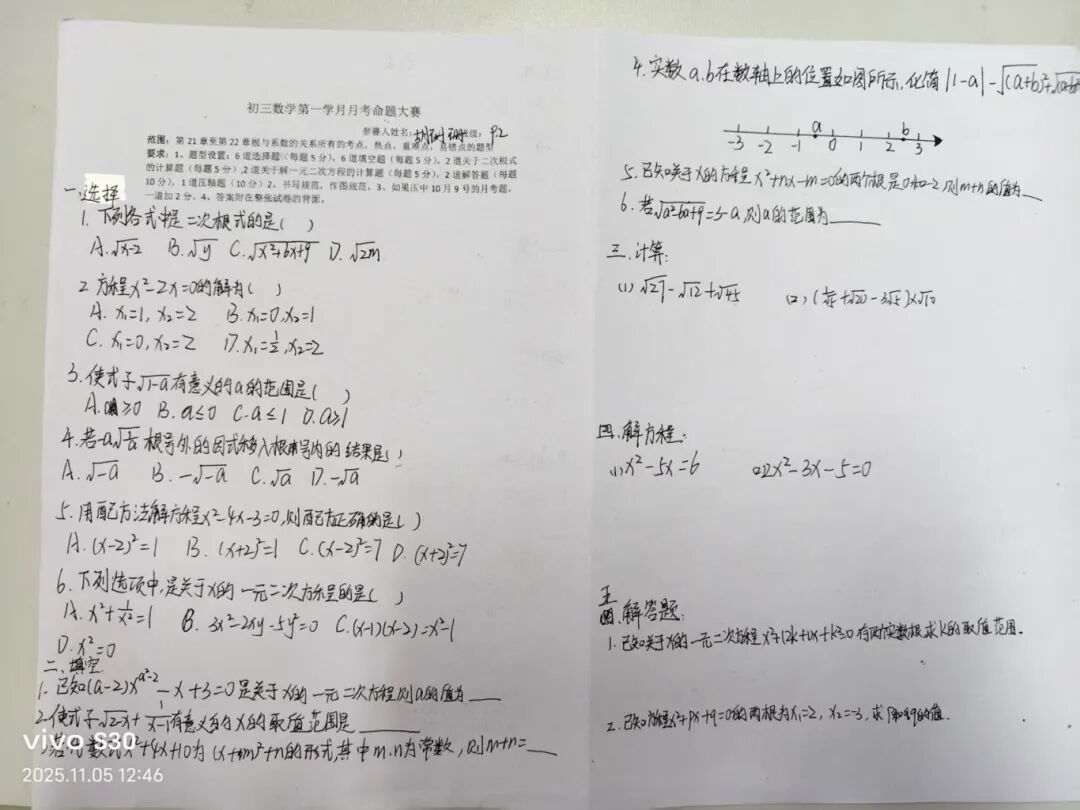 初三数学第一学月月考命题大赛
参赛人姓名: 班级: 9.2
范围:第21章至第22章根与系数的关系所有的考点,热点,重难点,易错点的题型
要求:1、题型设置:6道选择题(每题5分),6道填空题(每题5分),2道关于二次根式
的计算题(每题5分),2道关于解一元二次方程的计算题(每题5分),2道解答题(每题
10分),1道压轴题(10分)2、书写规范,作图规范,3、如果压中10月9号的月考题,
一道加2分,4、答案附在整张试卷的背面。
一.选择
1.下列各式中是二次根式的是( )
A.√x-2 B.√y C.√x²+6x+9 D.√2m
2.方程x²-2x=0的解为( )
A. x₁=1, x₂=2 B. x₁=0, x₂=1
C. x₁=0, x₂=2 D. x₁=1/2, x₂=2
3.使式子√1-a有意义的a的范围是( )
A.a≥0 B.a≤0 C.a≤1 D.a≥1
4.若-a 根号外的因式移入根号内的结果是( )
A.√-a B.-√-a C.√a D.-√a
5.用配方法解方程x²-4x-3=0,则配方正确的是( )
A.(x-2)²=1 B.(x+2)²=1 C.(x-2)²=7 D.(x+2)²=7
6.下列选项中,是关于x的一元二次方程的是( )
A.x²+1/x²=1 B.3x²-2xy-5y²=0 C.(x-1)(x-2)=x²-1
D.x²=0
二.填空
1.已知(a-2)x^(a²-2)-x+3=0是关于x的一元二次方程则a的值为___
2.使式子√2-x+1/x-1有意义的x的取值范围是___
若 数式x²+4x+10为(x+m)²+n的形式,其中m.n为常数,则m+n=___
vivo S30
2025.11.05 12:46
4.实数a.b在数轴上的位置如图所示,化简|1-a|-√(a+b)²+√(a-b)²
a b
-3 -2 -1 0 1 2 3
5.已知关于x的方程x²+nx-m=0的两个根是0和-2,则m+n的值为___
6.若√a²-6a+9=3-a,则a的范围为___
三.计算:
(1)√27-√12+√45 (2) +√20-3√5)×√10
四.解方程:
(1)x²-5x=6 (2)2x²-3x-5=0
五
四.解答题:
1.已知关于x的一元二次方程x²+(2k+1)x+k²=0有两实数根求k的取值范围。
2.已知方程x²+px+q=0的两根为x₁=2, x₂=-3,求p和q的值.